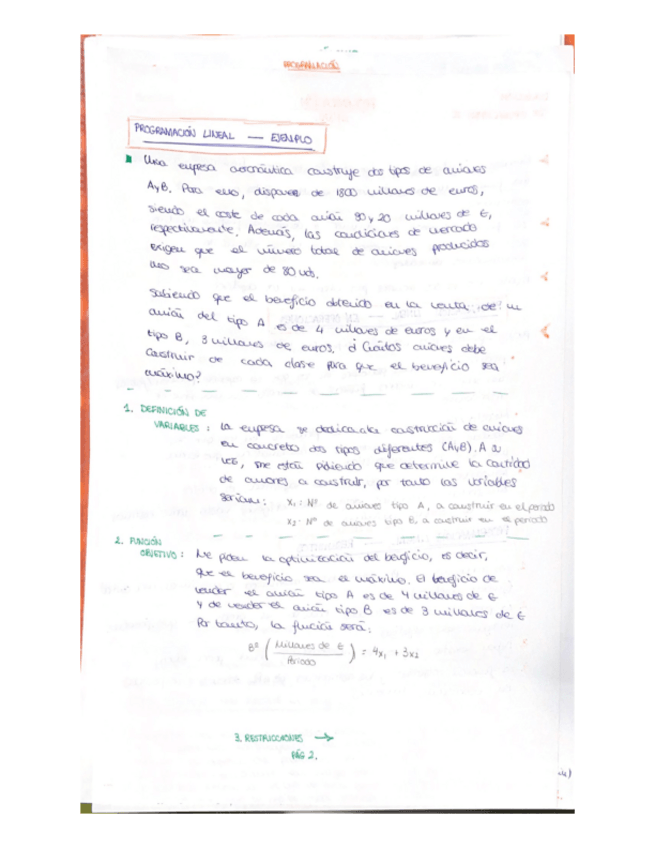 PROGRAMACIÓN
PROGRAMACIÓN LINEAL — EJEMPLO
Una empresa aeronáutica construye dos tipos de aviones
A y B. Para ello, dispone de 1800 millones de euros,
siendo el coste de cada avión 30 y 20 millones de €,
respectivamente. Además, las condiciones de mercado
exigen que el número total de aviones producidos
no sea mayor de 80 uds.
Sabiendo que el beneficio obtenido en la venta de un
avión del tipo A es de 4 millones de euros y en el
tipo B, 3 millones de euros. ¿Cuántos aviones debe
construir de cada clase para que el beneficio sea
máximo?
1. DEFINICIÓN DE
VARIABLES: La empresa se dedica a la construcción de aviones
en concreto dos tipos diferentes (A y B). A su
vez, me están pidiendo que determine la cantidad
de aviones a construir, por tanto las variables
serían: x₁: Nº de aviones tipo A, a construir en el periodo
x₂: Nº de aviones tipo B, a construir en el periodo
2. FUNCIÓN
OBJETIVO: Me piden la optimización del beneficio, es decir,
que el beneficio sea el máximo. El beneficio de
vender el avión tipo A es de 4 millones de €
y de vender el avión tipo B es de 3 millones de €
Por tanto, la función será:
Bº (Millones de € / Periodo) = 4x₁ + 3x₂
3. RESTRICCIONES →
PÁG 2.